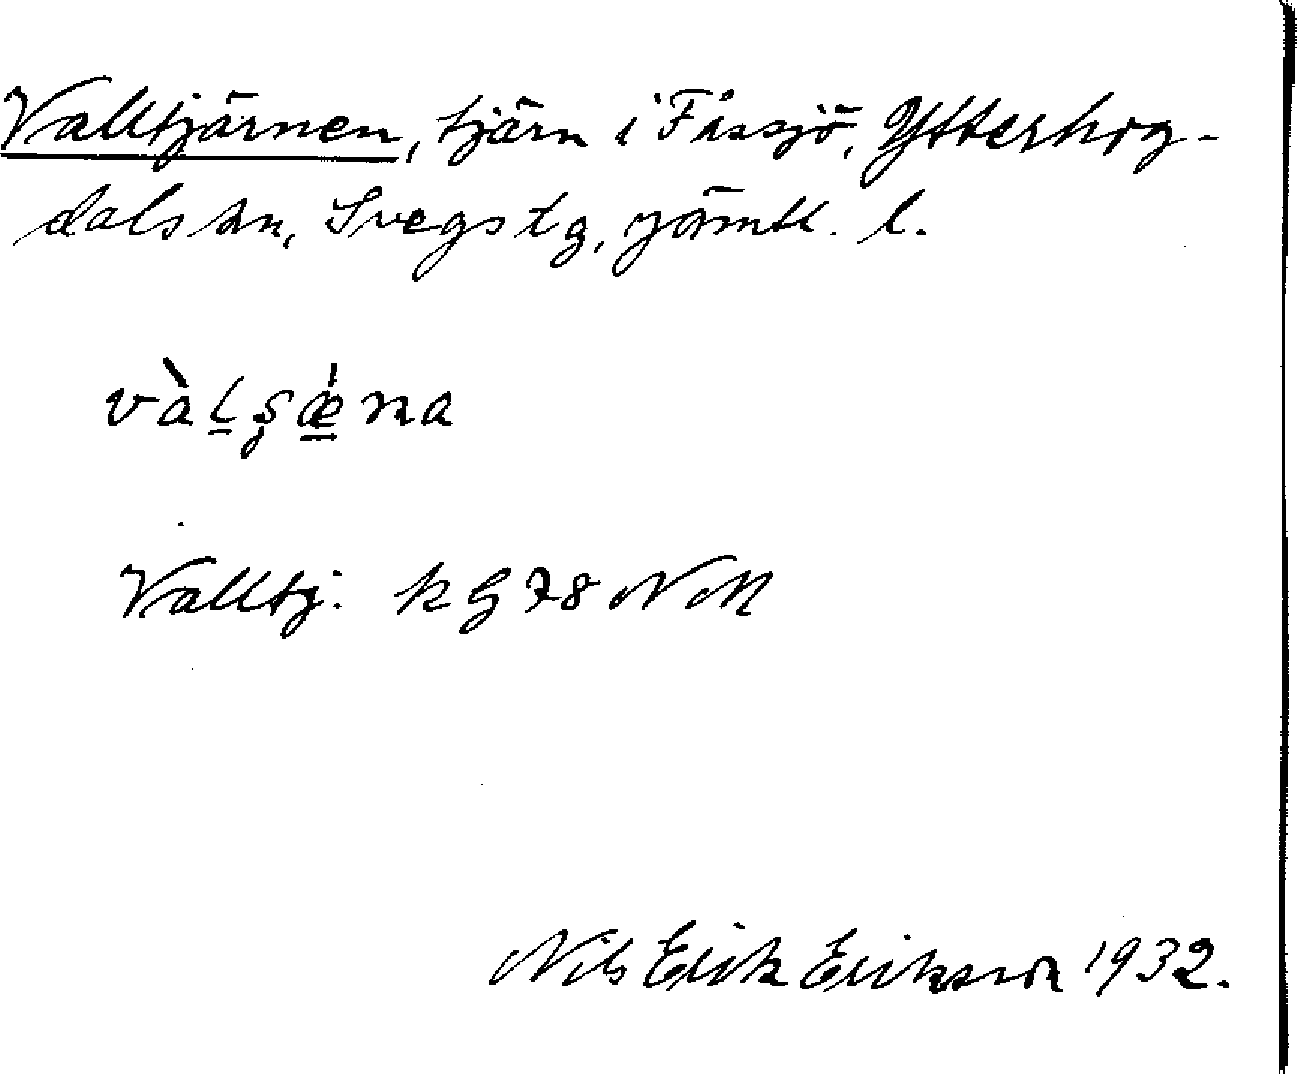 Valltjärnen, tjärn i Fåssjö, Ytterhog-
dals sn, Svegs tg, Jämtl. l.
vàl̲şǽ̲na
Valltj. kG78 NM
Nils Erik Eriksson 1932.